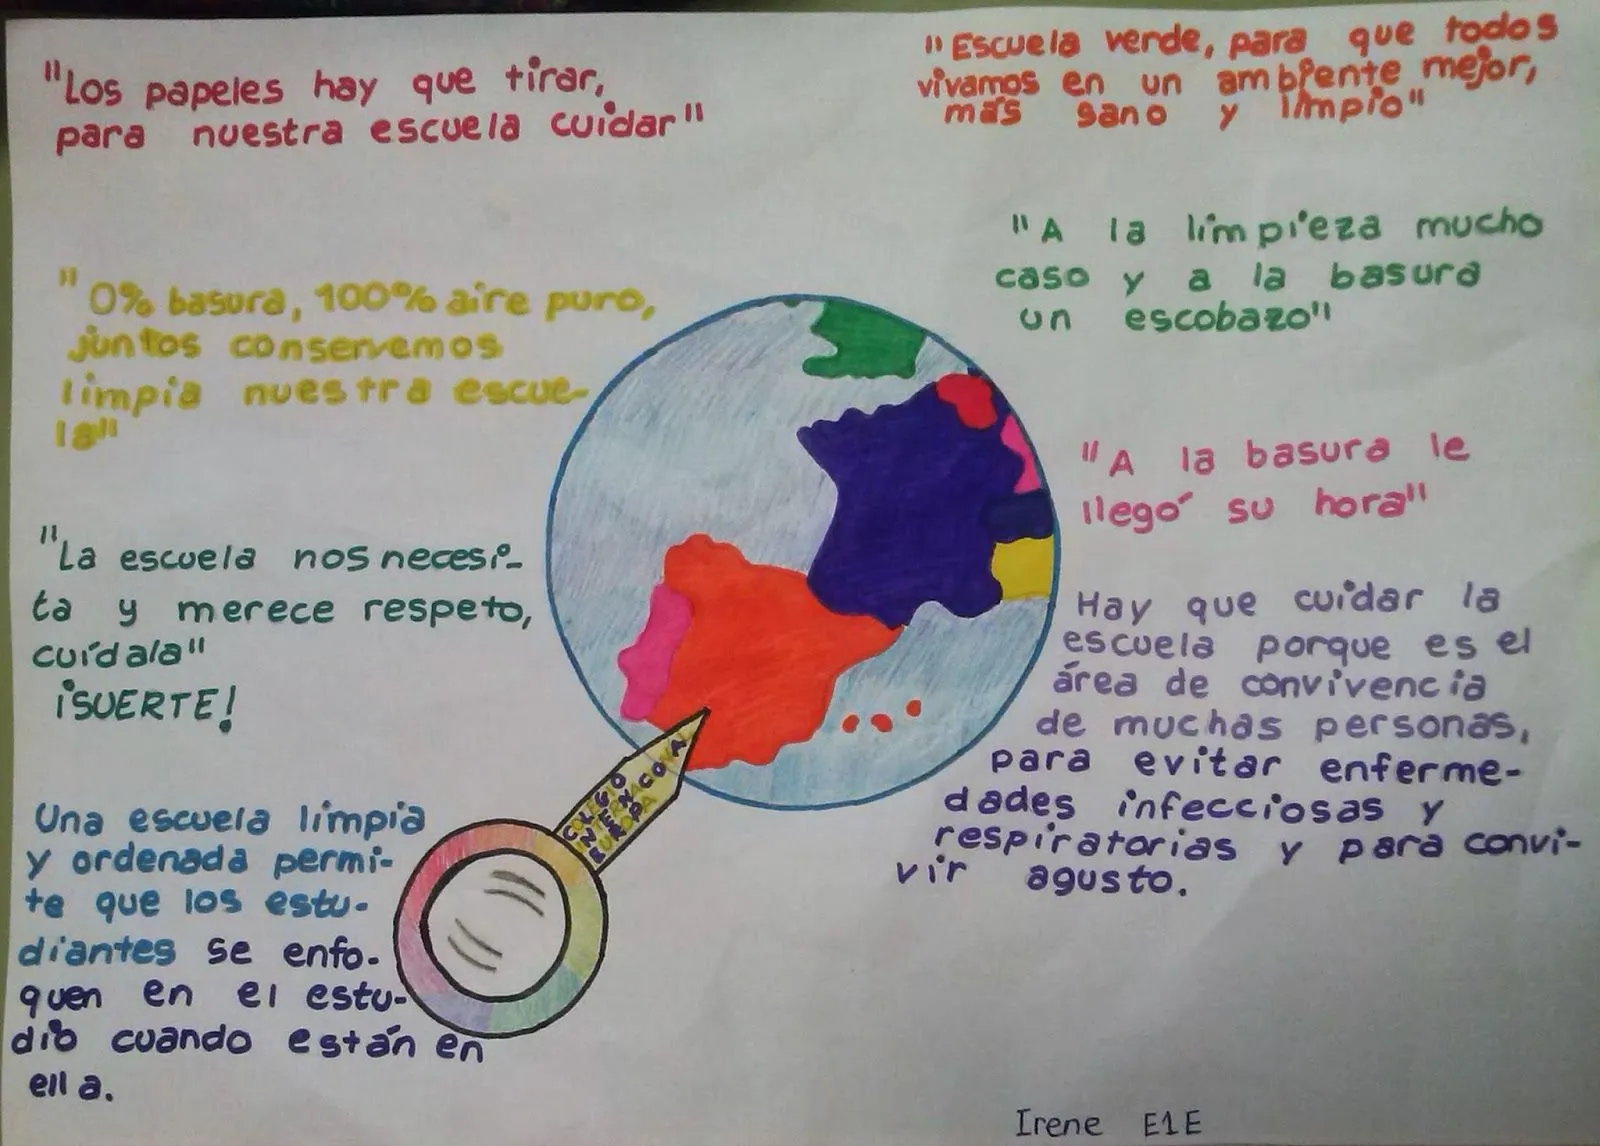 "Los papeles hay que tirar,
para nuestra escuela cuidar"
"Escuela verde, para que todos
vivamos en un ambiente mejor,
más sano y limpio"
"0% basura, 100% aire puro,
juntos conservemos
limpia nuestra escue-
la"
"A la limpieza mucho
caso y a la basura
un escobazo"
"A la basura le
llegó su hora"
"La escuela nos necesi-
ta y merece respeto,
cuídala"
¡SUERTE!
Hay que cuidar la
escuela porque es el
área de convivencia
de muchas personas,
para evitar enferme-
dades infecciosas y
respiratorias y para convi-
vir agusto.
COLEGIO
EUROPA
Una escuela limpia
y ordenada permi-
te que los estu-
diantes se enfo-
quen en el estu-
dio cuando están en
ella.
Irene E1E